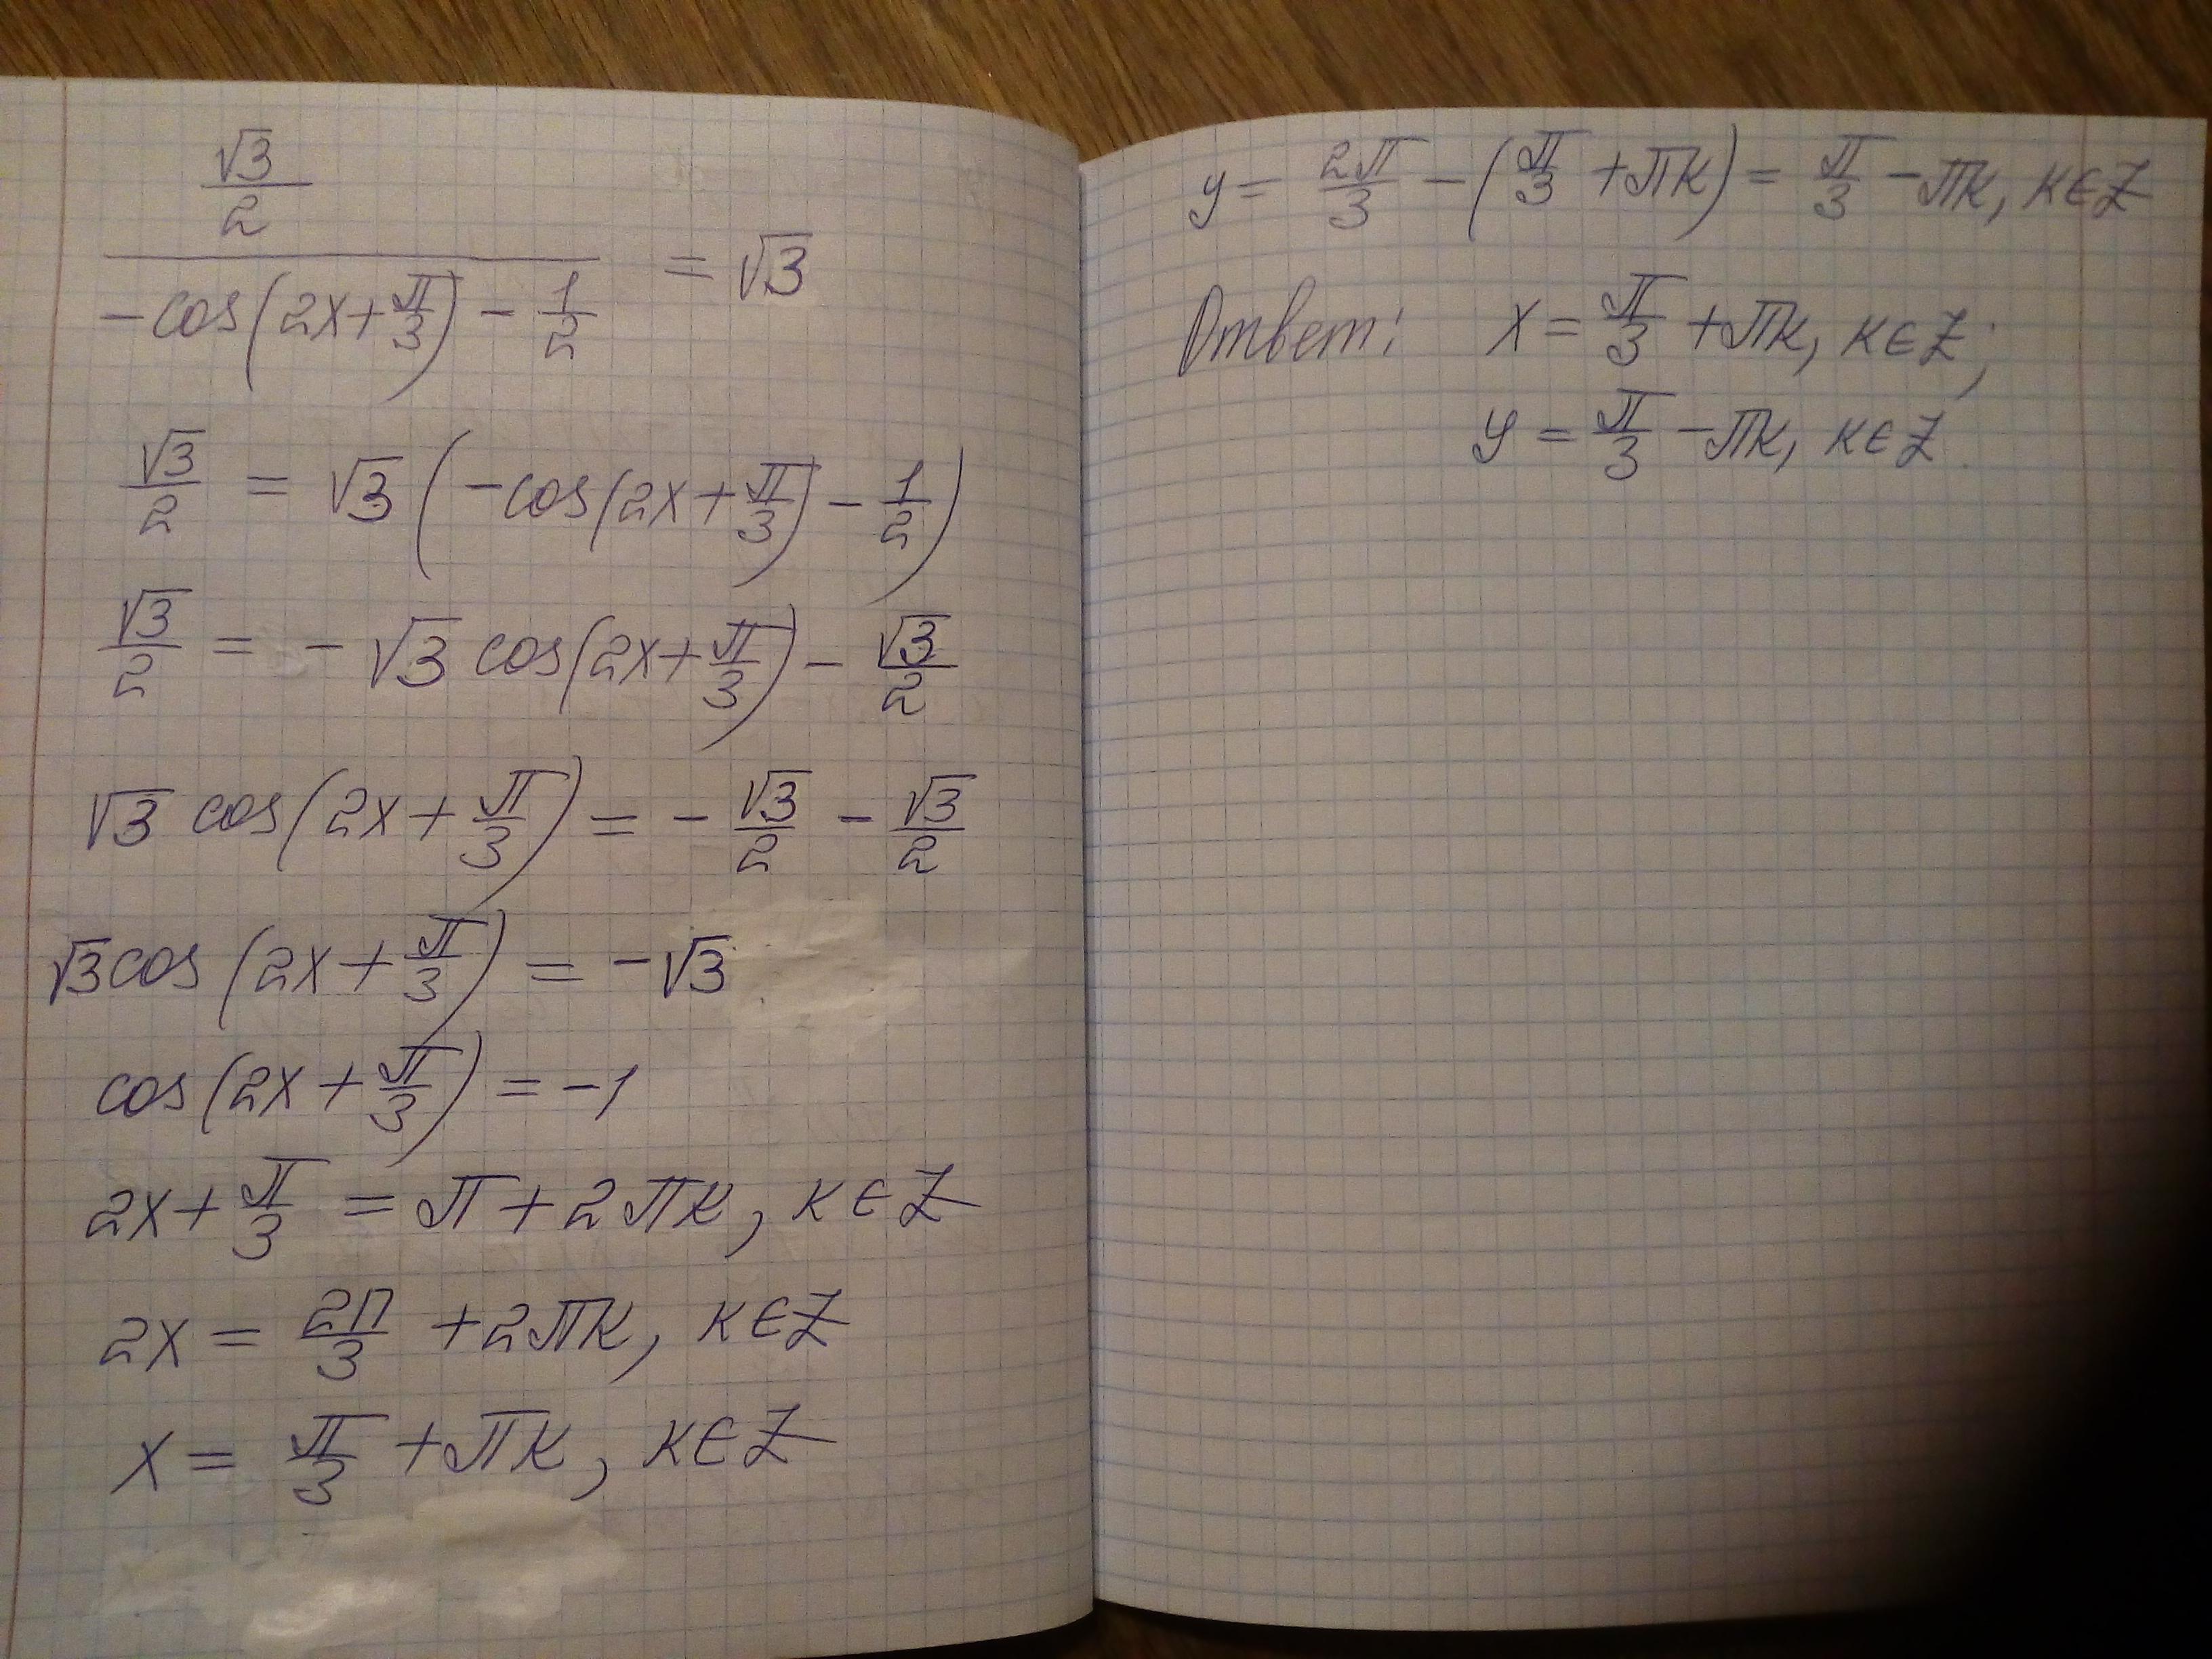 (√3/2)/(-cos(2x+π/3) - 1/2) = √3
√3/2 = √3(-cos(2x+π/3) - 1/2)
√3/2 = -√3 cos(2x+π/3) - √3/2
√3 cos(2x+π/3) = -√3/2 - √3/2
√3cos(2x+π/3) = -√3
cos(2x+π/3) = -1
2x+π/3 = π+2πk, k∈Z
2x = 2π/3 +2πk, k∈Z
x = π/3 +πk, k∈Z
y = 2π/3 - (π/3 +πk) = π/3 -πk, k∈Z
Ответ: x = π/3 +πk, k∈Z;
y = π/3 -πk, k∈Z.